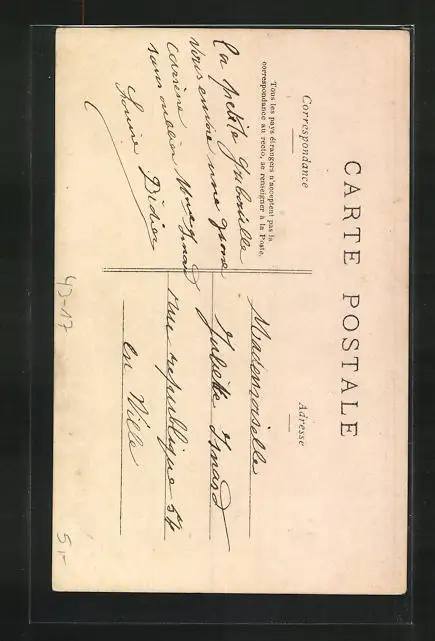 CARTE POSTALE
Correspondance
Tous les pays étrangers n'acceptent pas la
correspondance au recto, se renseigner à la Poste.
la petite
vous envoie une grosse
caresse
sans oublier
Louise Didier
Adresse
Mademoiselle
Juliette Isnard
rue republique 54
en Ville
43-17
5,-